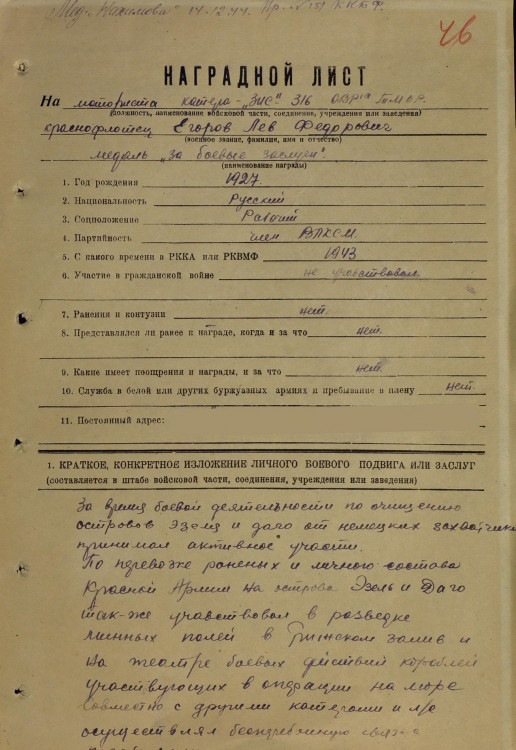 "Мед. Нахимова" 14.12.44. Пр. № 151 ККБФ.
46
НАГРАДНОЙ ЛИСТ
На моториста катера "ЗИС" 316
(должность, наименование войсковой части, соединение, учреждения или заведения)
краснофлотец Егоров Лев Федорович
(военное звание, фамилия, имя и отчество)
медаль "за боевые заслуги".
(наименование награды)
1. Год рождения 1927.
2. Национальность Русский
3. Соцположение Рабочий
4. Партийность член ВЛКСМ.
5. С какого времени в РККА или РКВМФ 1943
6. Участие в гражданской войне не участвовал.
7. Ранения и контузии нет.
8. Представлялся ли ранее к награде, когда и за что нет.
9. Какие имеет поощрения и награды, и за что нет.
10. Служба в белой или других буржуазных армиях и пребывание в плену нет.
11. Постоянный адрес:
1. КРАТКОЕ, КОНКРЕТНОЕ ИЗЛОЖЕНИЕ ЛИЧНОГО БОЕВОГО ПОДВИГА ИЛИ ЗАСЛУГ
(составляется в штабе войсковой части, соединения, учреждения или заведения)
За время боевой деятельности по очищению
островов Эзеля и даго от немецких захватчик
принимал активное участи.
По перевозке раненых и личного состава
Красной Армии на острова Эзель и Даго
так-же участвовал в разведке
минных полей в Рижском заливе и
на театре боевых действий кораблей
участвующих в операции на море
совместно с другими катерами и л/с
осуществлял бесперебойную связь с